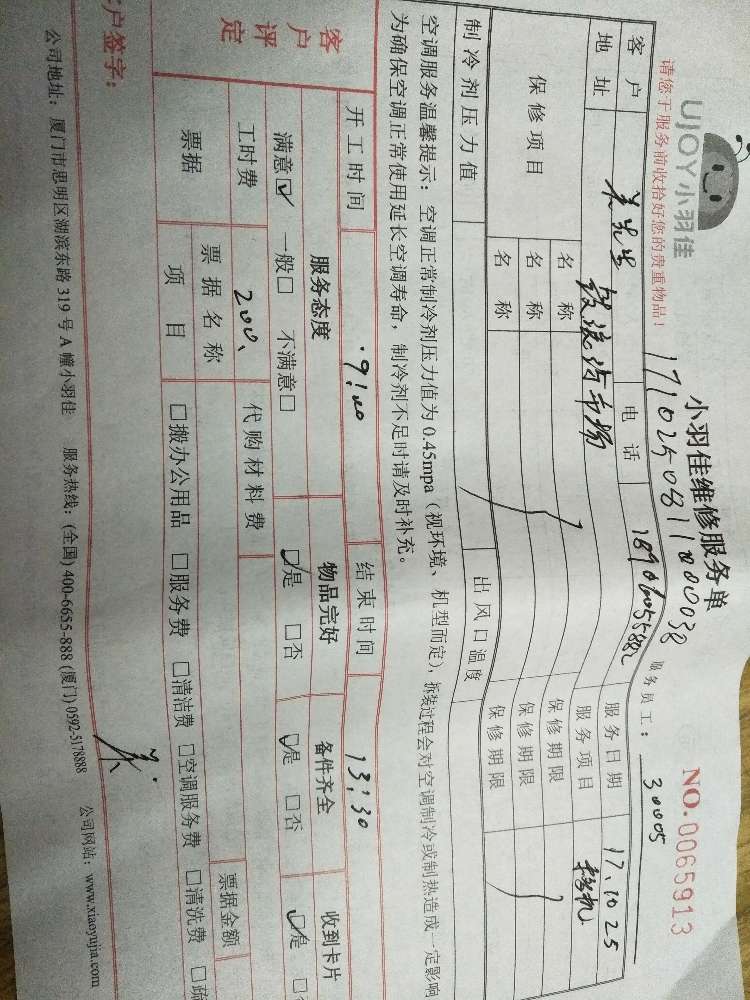 UJOY小羽佳
小羽佳维修服务单
NO.0065913
171025081100038
请您于服务前收拾好您的贵重物品！
服务员工：30005
客户 电话 服务日期 17.10.25
地址 服务项目
保修项目 名称 保修期限
名称 保修期限
名称 保修期限
制冷剂压力值 出风口温度
空调服务温馨提示：空调正常制冷剂压力值为0.45mpa（视环境、机型而定），拆装过程会对空调制冷或制热造成一定影响
为确保空调正常使用延长空调寿命，制冷剂不足时请及时补充。
开工时间 9:00 结束时间 13:30
客户评定 服务态度 物品完好 备件齐全 收到卡片
满意☑ 一般□ 不满意□ ☑是 □否 ☑是 □否 ☑是
工时费 200 代购材料费
票据 票据名称 票据金额
项目 □搬办公用品 □服务费 □清洁费 □空调服务费 □清洗费 □疏
户签字：
公司地址：厦门市思明区湖滨东路319号A幢小羽佳 服务热线：(全国)400-6655-888(厦门)0592-5178888 公司网站：www.xiaoyujia.com